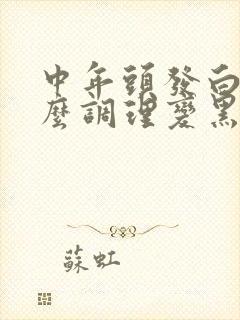 中年頭發白
麼調理變黑
蘇虹